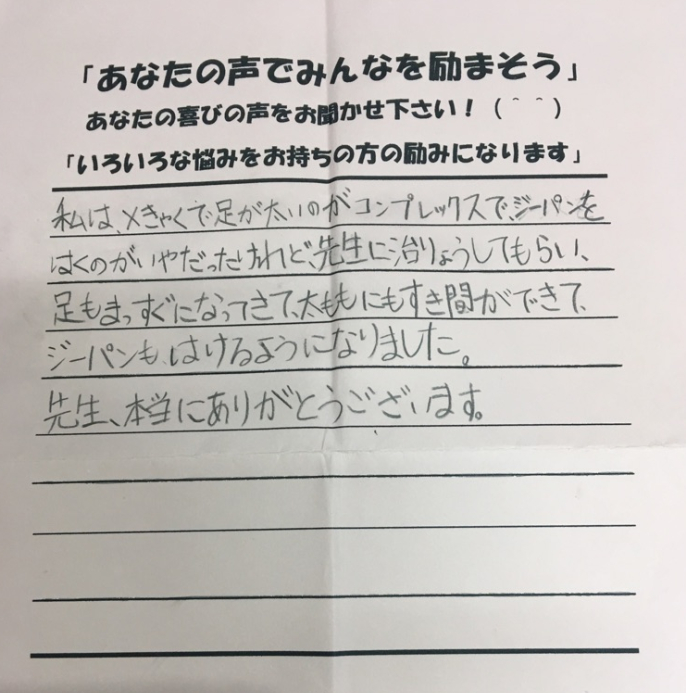 「あなたの声でみんなを励まそう」
あなたの喜びの声をお聞かせ下さい！（＾＾）
「いろいろな悩みをお持ちの方の励みになります」
私は、Xきゃくで足が太いのがコンプレックスで、ジーパンを
はくのがいやだったけれど、先生に治りょうしてもらい、
足もまっすぐになってきて、太ももにもすき間ができて、
ジーパンも、はけるようになりました。
先生、本当にありがとうございます。